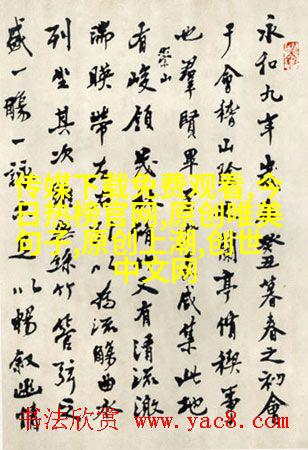 永和九年歲癸丑暮春之初會
于會稽山陰蘭亭脩稧事
也羣賢畢咸集此地
有崇山峻領茂脩又有清流激
湍暎帶左右以為流觴曲水
列坐其次絲竹管弦之
盛一觴一詠以暢敘幽情
传媒下载免费观看,今
日热榜官网,原创唯美
句子,原创上潮,创世
中文网
书法欣赏 www.yac8.com